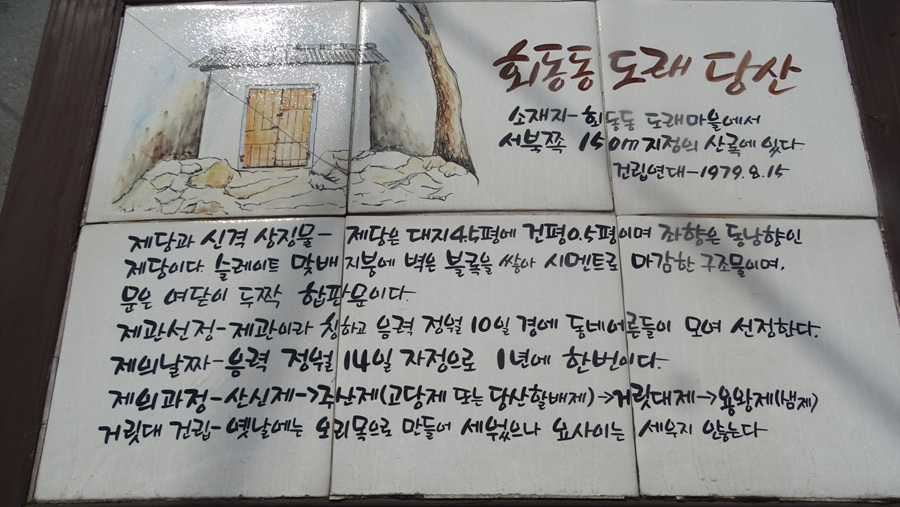 회동동 도래 당산
소재지-회동동 도래마을에서
서북쪽 150m 지점의 산록에 있다.
건립연대-1979.8.15
제당과 신격 상징물- 제당은 대지4.5평에 건평0.5평이며 좌향은 동남향인
제당이다. 슬레이트 맞배 지붕에 벽은 블록을 쌓아 시멘트로 마감한 구조물이며,
문은 여닫이 두짝 합판문이다.
제관선정-제관이라 칭하고 음력 정월 10일 경에 동네어른들이 모여 선정한다.
제의날짜-음력 정월 14일 자정으로 1년에 한번이다.
제의과정-산신제->조난제(고당제 또는 당산할배제)->거릿대제->용왕제(샘제)
거릿대 건립-옛날에는 오리목으로 만들어 세웠으나 요사이는 세우지 않는다